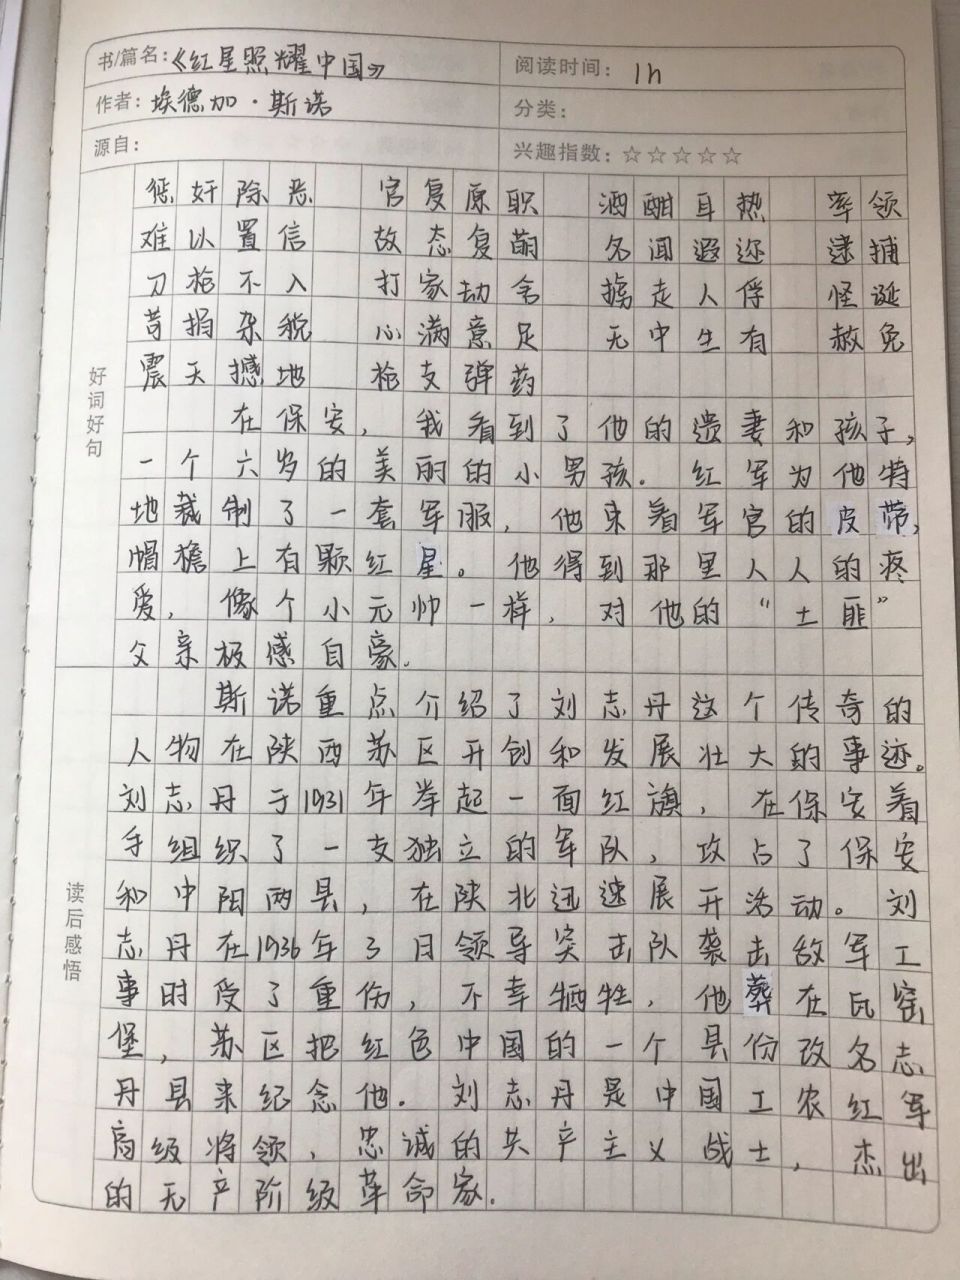 书/篇名：《红星照耀中国》 阅读时间：1h
作者：埃德加·斯诺 分类：
源自： 兴趣指数：☆☆☆☆☆
好词好句
惩奸除恶 官复原职 酒酣耳热 率领
难以置信 故态复萌 名闻遐迩 逮捕
刀枪不入 打家劫舍 掳走人俘 怪诞
苛捐杂税 心满意足 无中生有 赦免
震天撼地 枪支弹药
在保安，我看到了他的遗妻和孩子，
一个六岁的美丽的小男孩．红军为他特
地裁制了一套军服，他束着军官的皮带，
帽檐上有颗红星。他得到那里人人的疼
爱，像个小元帅一样，对他的“土匪”
父亲极感自豪．
读后感悟
斯诺重点介绍了刘志丹这个传奇的
人物在陕西苏区开创和发展壮大的事迹。
刘志丹于1931年举起一面红旗，在保安着
手组织了一支独立的军队，攻占了保安
和中阳两县，在陕北迅速展开活动。刘
志丹在1936年3月领导突击队袭击敌军工
事时受了重伤，不幸牺牲，他葬在瓦窑
堡，苏区把红色中国的一个县份改名志
丹县来纪念他．刘志丹是中国工农红军
高级将领，忠诚的共产主义战士，杰出
的无产阶级革命家．